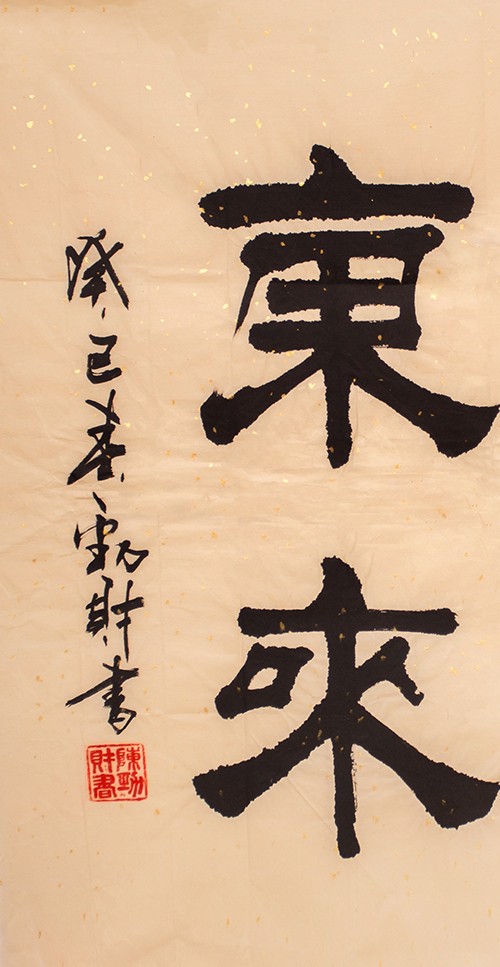 東來
癸巳春勁財書
陳勁
財書